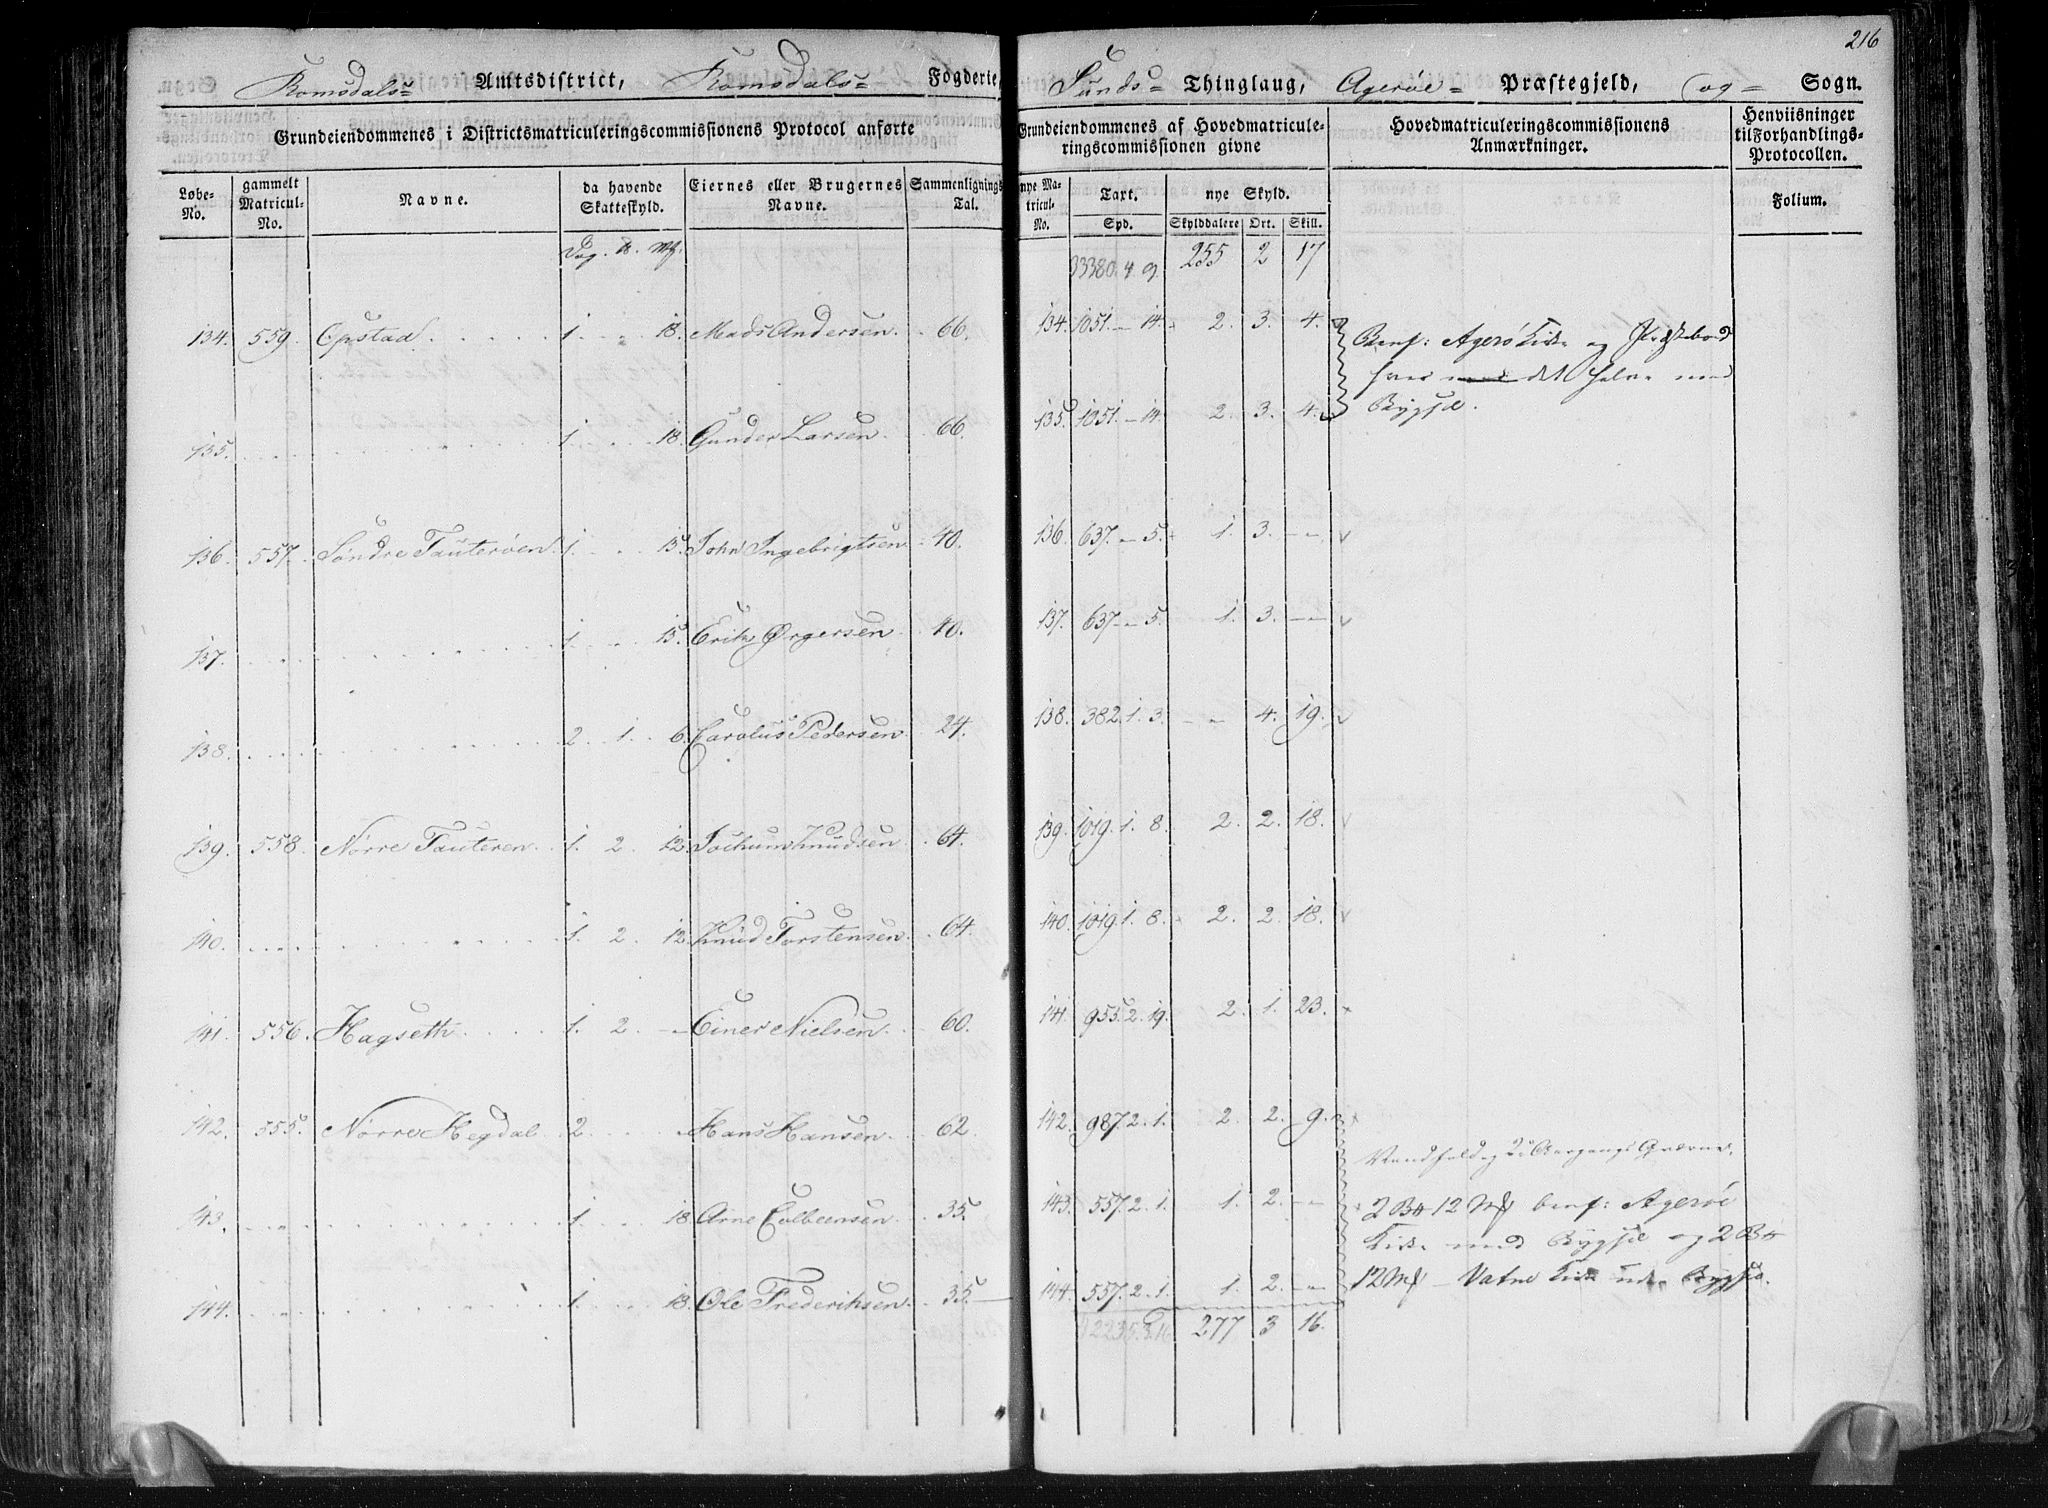 216
Romsdals Amtsdistrict, Romsdals Fogderie, Sunds Thinglaug, Agerøe Præstegjeld, og Sogn.
Grundeiendommenes i Districtsmatriculeringscommissionens Protocol anførte
Grundeiendommenes af Hovedmatriculeringscommissionen givne
Hovedmatriculeringscommissionens Anmærkninger.
Henviisninger til Forhandlings-Protocollen.
Løbe-No. gammelt Matricul-No. Navne. da havende Skatteskyld. Eiernes eller Brugernes Navne. Sammenlignings Tal. nye Matricul-No. Taxt. Spd. nye Skyld. Skylddalere Ort. Skill. Folium.
255 2 17
134. 559. Opstad 1. „ 18. Mads Andersen. 66. 134. 1051. — 14. 2. 3. 4.
Benf: Agerö Kirke og
det halve med
Bygsel.
135. 1. 18. Gunder Larsen. 66. 135. 1051. — 14. 2. 3. 4.
136. 557. Söndre Tauteröen 1. 15. John Ingebrigtsen 40. 136. 637. — 5. 1. 3. — —
137. 1. 15. Erik Ørgersen 40. 137. 637. — 5. 1. 3. — —
138. 2. 1. 6. Carolus Pedersen 24. 138. 382. 1. 3. — 4. 19.
139. 558. Nörre Tauteren 1. 2. 12. Jochum Knudsen 64. 139. 1019. 1. 8. 2. 2. 18.
140. 1. 2. 12. Knud Torstensen 64. 140. 1019. 1. 8. 2. 2. 18.
141. 556. Hagseth 1. 2. — Einer Nielsen 60. 141. 955. 2. 19. 2. 1. 23.
142. 555. Nörre Hegdal 2. Hans Hansen 62. 142. 987. 2. 1. 2. 2. 9.
143. 1. 18. Arne Colbeensen 35. 143. 557. 2. 1. 1. 2. — —
2 12 benf: Agerøe
Kirke med Bygsel og 2
144. 1. 18. Ole Frederiksen 35. 144. 557. 2. 1. 1. 2. — —
12 Vatne Kirke uden Bygsel.
277 3 16.